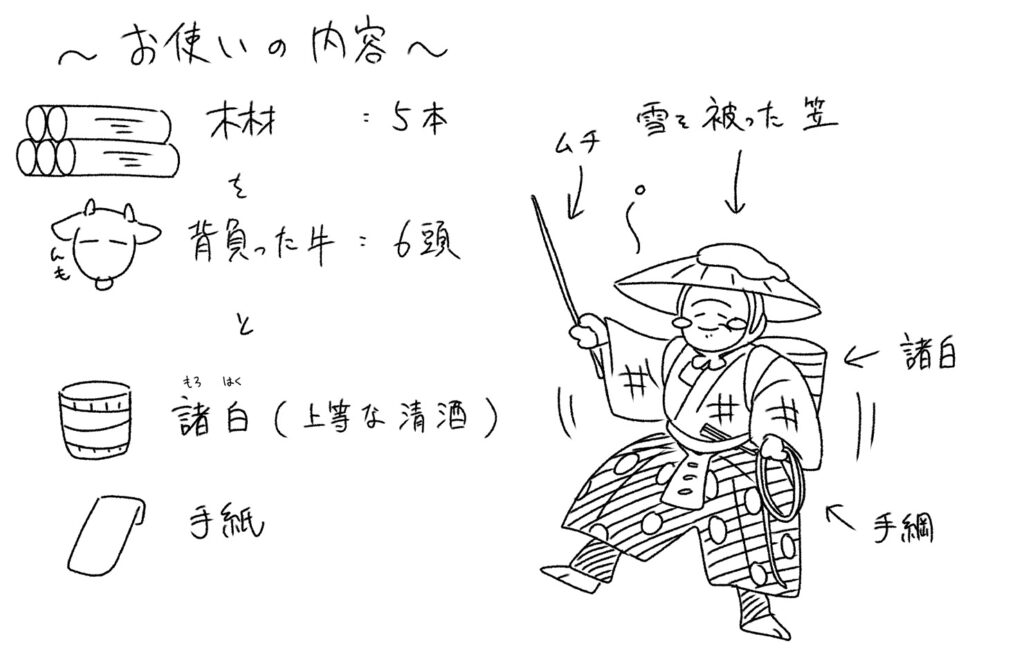 ～お使いの内容～
木材 : 5本
を
背負った牛 : 6頭
んも
と
もろ はく
諸白(上等な清酒)
手紙
雪を被った笠
ムチ
諸白
手綱